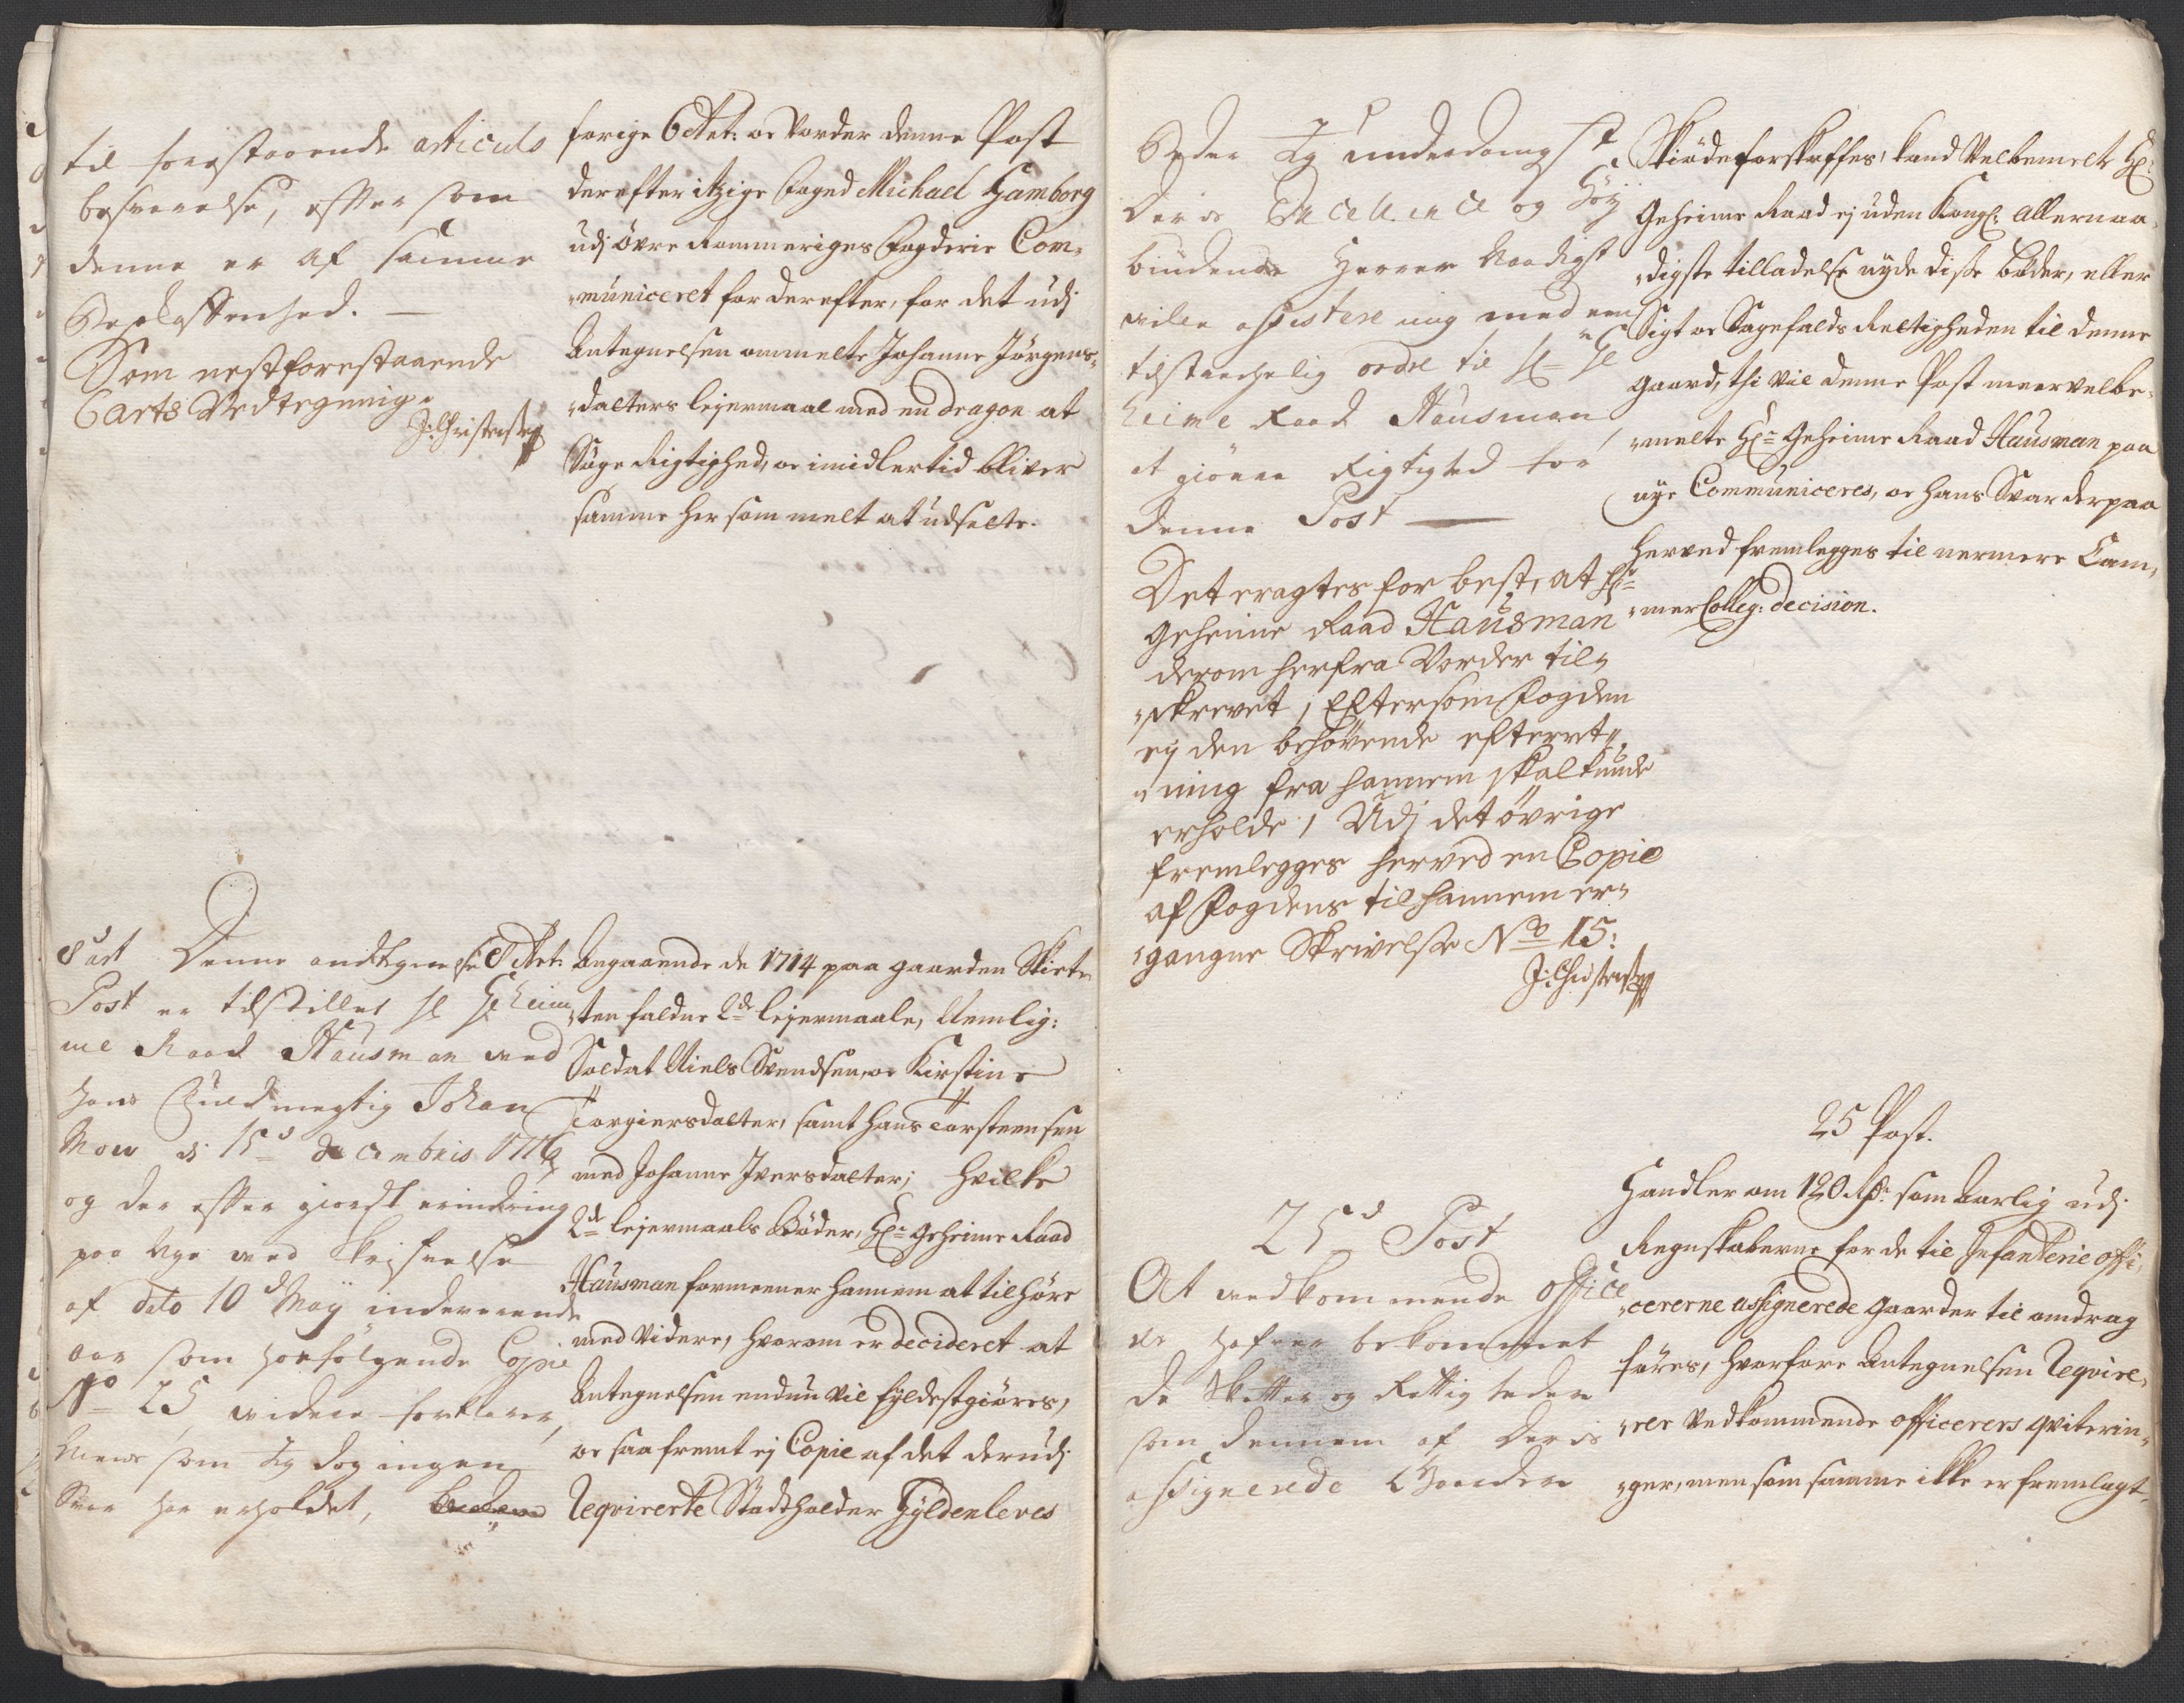 til forestaaende articuls
besvarelse, efter som
denne er af samme
Beschaffenhed. —
Som nestforestaaende
6 arts Vedtegning.
J: Christensen

forige 6 Art: or vorder denne Post
derefter itzige Foged Michael Hamborg
udj øvre Rommeriges Fogderie Com-
municeret for derefter, for det udj
Antegnelsen ommelte Johanne Jørgens-
dalters lejermaal med en dragon at
Søge Rigtighed, oc imidlertid bliver
samme her som melt at udsette.

8 art Denne andtegnelse
Post er tilstillet H Geheim
me Raad Hausman med
hans Fuldmegtig Johan
Mow d: 15d decembris 1716
og der effter giordt erindring
paa Nye med Skrifvelse
af dato 10d Maij indeverende
aar som hosfølgende Copie
No 25 videre forklarer,
Mens som Jeg dog ingen
Svar har erholdet,

8 Art: Angaaende de 1714 paa gaarden Skirte-
sten faldne 2de lejermaale, Nemlig:
Soldat Niels Svendsen, oc Kirstine
Torgiersdalter, samt Hans Torsteensen
med Johanne Iversdalter; hvilke
2de lejermaals Bøder, Hr: Geheime Raad
Hausman formeener hannem at tilhøre
med Videre, hvorom er decideret at
Antegnelsen endnu vil fyldestgiøres,
oc saafremt ej Copie af det derudj
Reqvirerte Stadtholder Gyldenleves

Beder Jeg underdanigst
Deris Excellence og Høy
biudende Herrer Naadigst
ville assistere mig med een
tilstrechelig ordre til H: Ge
heime Raad Hausman
at giøre Rigtighed for
denne Post —
Det eragtes for best, at Hr:
Geheime Raad Hausman
derom herfra Vorder til-
skrevet, Eftersom Fogden
ej den behøvende efterret-
ning fra hannem skal kunde
erholde, Udj det øvrige
fremlegges herved en Copie
af Fogdens til hannem er-
gangne Skrivelse No 15:
J: Christensen

Skiøde forskaffes, kand Velbemelte Hr:
Geheime Raad ej uden Kongl: Allernaa-
digste tilladelse nyde disse bøder, eller
Sigt oc Sagefalds Rettigheden til denne
gaard, thi vil denne Post meervelbe-
melte Hr: Geheime Raad Hausman paa
nye Communiceres, oc hans Svar derpaa
herved fremlegges til nermere Cam-
mer Colleg: decision.

25d Post
At vedkommende office
rer hafver bekommet
de Skatter og Rettigheder
som dennem af deris
assignerede Gaarder

25 Post.
Handler om 120 Rdr: som Aarlig udj
Regnskaberne for de til Infanterie offi-
cererne assignerede gaarder til omdrag
føres, hvorfore Antegnelsen Reqvire-
rer Vedkommende officerers qviterin-
ger, men som samme ikke er fremlagt,